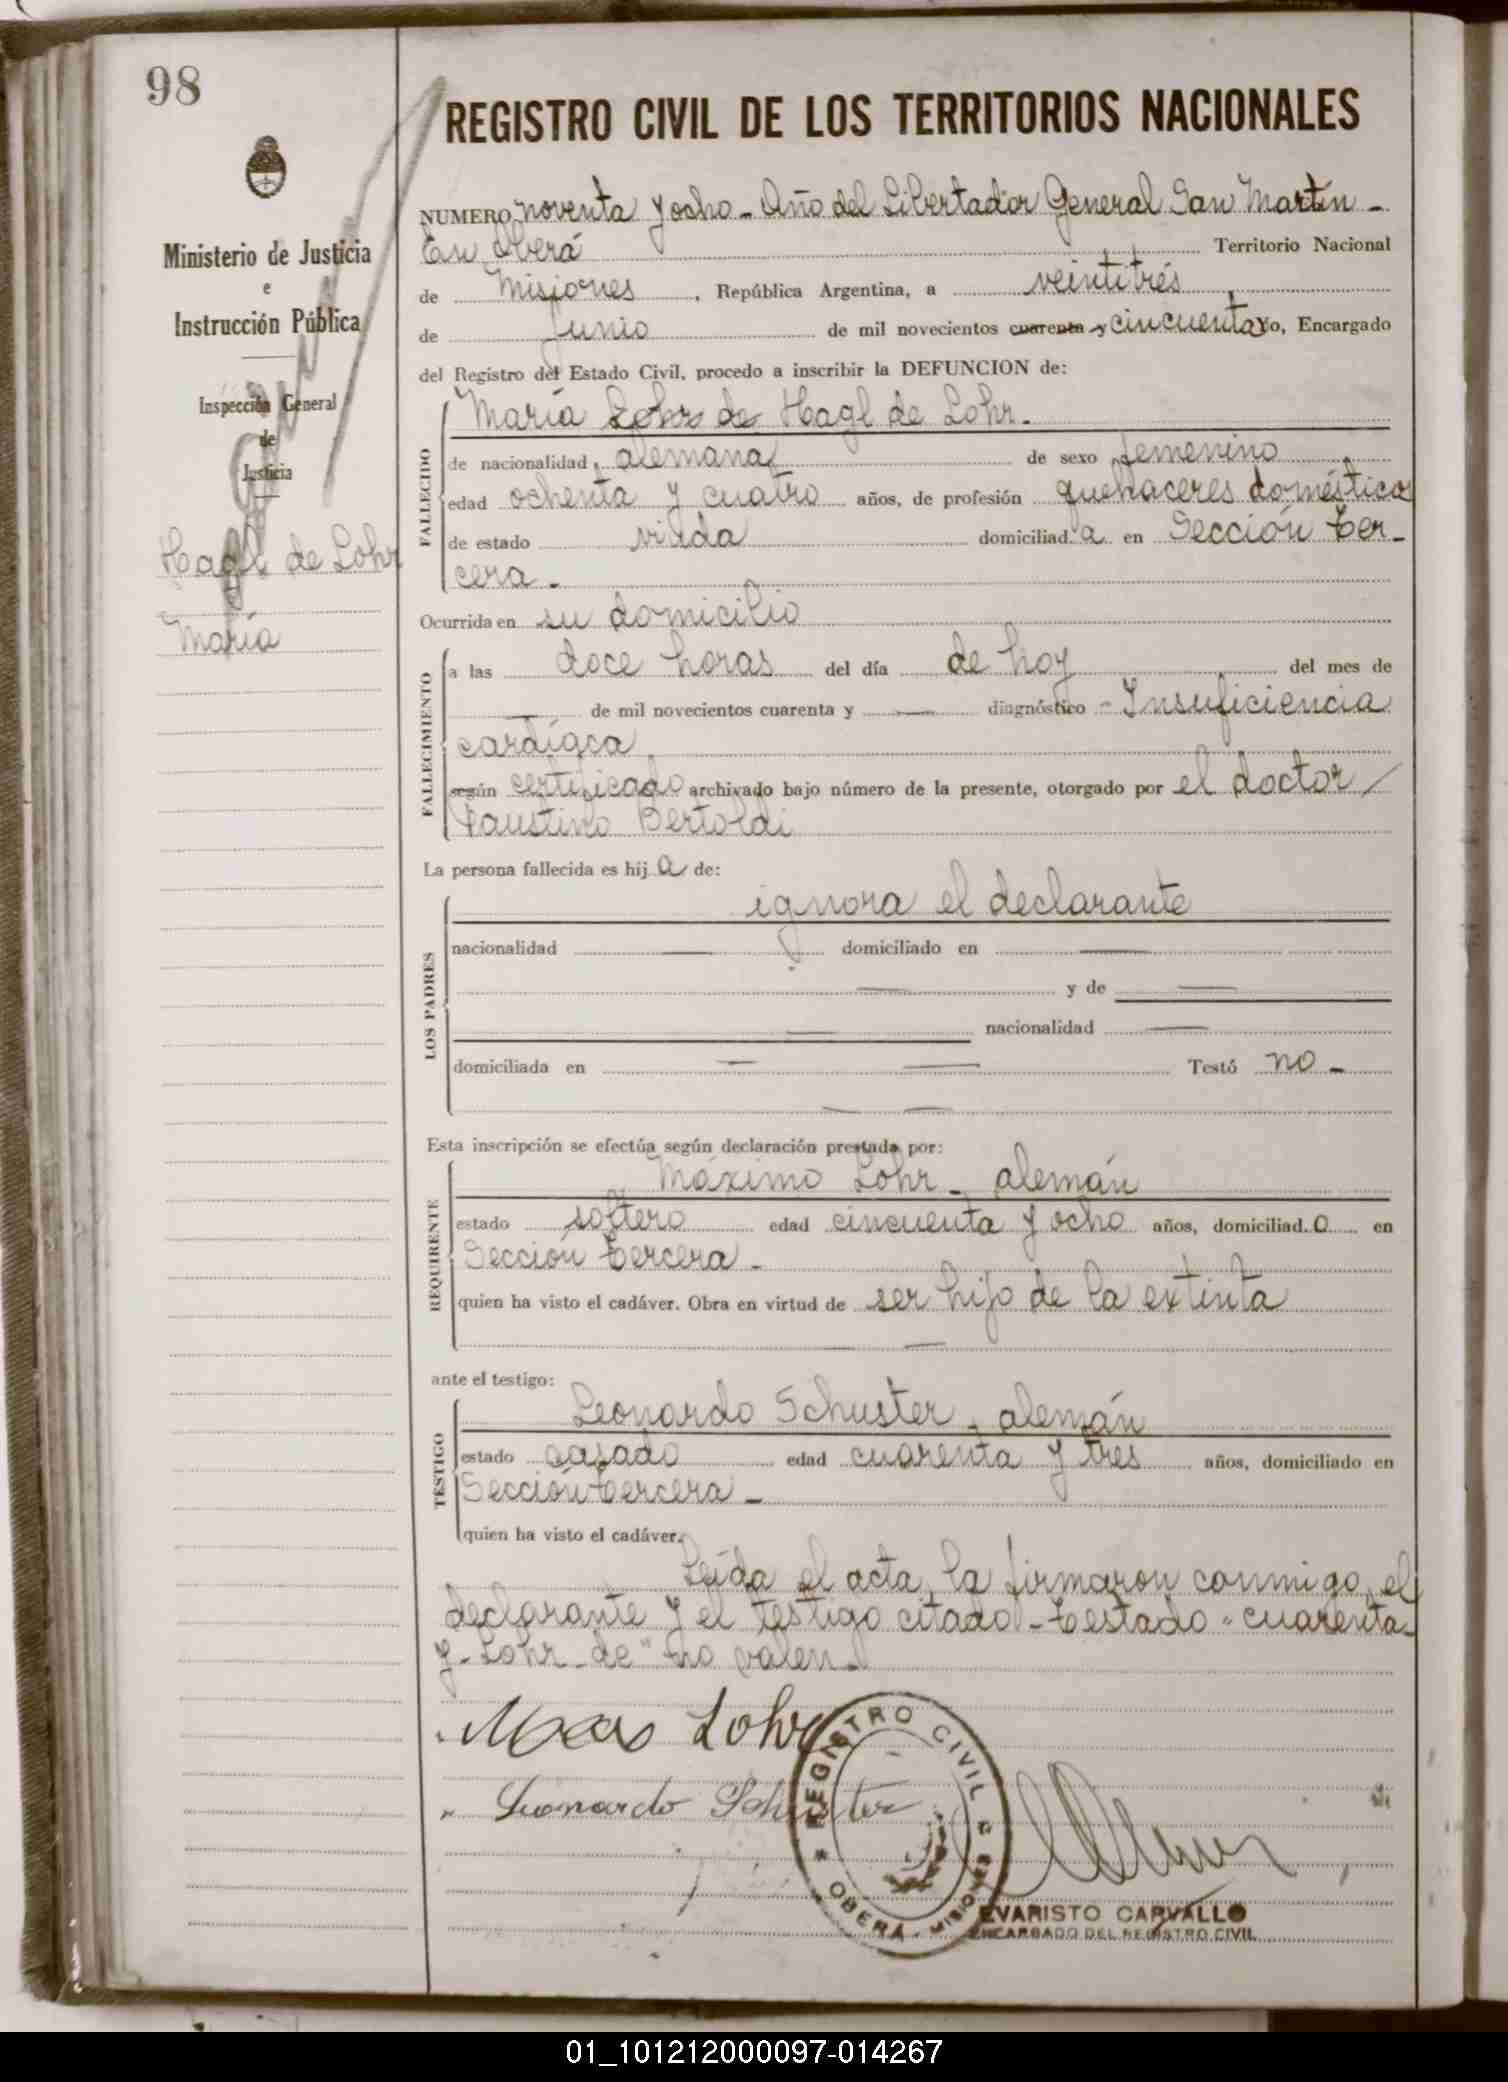 98
REGISTRO CIVIL DE LOS TERRITORIOS NACIONALES
Ministerio de Justicia
e
Instrucción Pública
Inspección General
de
Justicia
Hagl de Lohr
María
NUMERO noventa y ocho - Año del Libertador General San Martín -
En Oberá Territorio Nacional
de Misiones, República Argentina, a veintitrés
de Junio de mil novecientos cuarenta y cincuenta Yo, Encargado
del Registro del Estado Civil, procedo a inscribir la DEFUNCION de:
FALLECIDO
María Lohr de Hagl de Lohr.-
de nacionalidad alemana de sexo femenino
edad ochenta y cuatro años, de profesión quehaceres doméstica
de estado viuda domiciliad a en Sección Ter-
cera.-
Ocurrida en su domicilio
FALLECIMIENTO
a las doce horas del día de hoy del mes de
— de mil novecientos cuarenta y — diagnóstico - Insuficiencia
cardíaca
según certificado archivado bajo número de la presente, otorgado por el doctor /
Faustino Bertoldi
La persona fallecida es hij a de:
LOS PADRES
ignora el declarante
nacionalidad — domiciliado en —
— y de —
— nacionalidad —
domiciliada en — — Testó no -
— —
Esta inscripción se efectúa según declaración prestada por:
REQUIRENTE
Máximo Lohr - alemán
estado soltero edad cincuenta y ocho años, domiciliad o en
Sección tercera -
quien ha visto el cadáver. Obra en virtud de ser hijo de la extinta
— —
ante el testigo:
TESTIGO
Leonardo Schuster, alemán
estado casado edad cuarenta y tres años, domiciliado en
Sección tercera -
quien ha visto el cadáver.
Leída el acta, la firmaron conmigo, el
declarante y el testigo citado - testado "cuarenta-
y - Lohr - de" no valen -
Max Lohr
Leonardo Schuster
REGISTRO CIVIL
* OBERÁ - MISIONES
EVARISTO CARVALLO
ENCARGADO DEL REGISTRO CIVIL
01_101212000097-014267